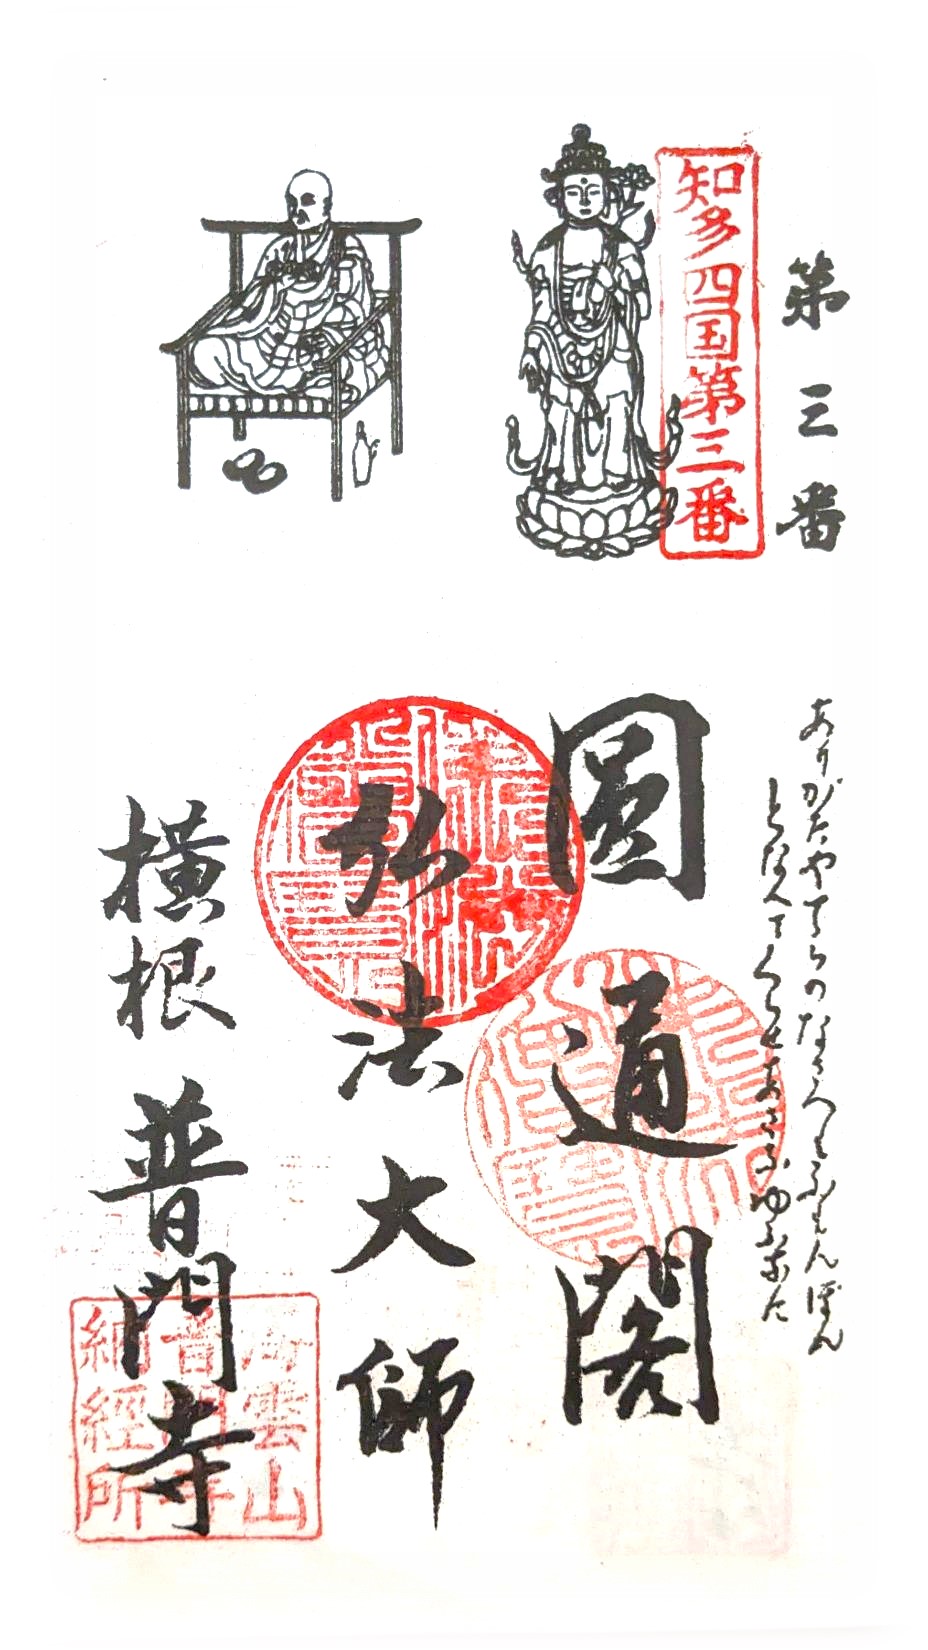 第三番
知多四国第三番
ありがたやてらのなさへもふもんぼん
となへてくらせあさなゆふなに
圓通閣
弘法大師
横根 普門寺
海雲山
普門寺
納經所